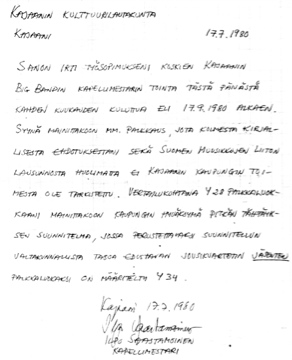 KAJAANIN KULTTUURILAUTAKUNTA
KAJAANI 17.7.1980
SANON IRTI TYÖSOPIMUKSENI KOSKIEN KAJAANIN
BIG BANDIN KAPELLIMESTARIN TOINTA TÄSTÄ PÄIVÄSTÄ
KAHDEN KUUKAUDEN KULUTTUA ELI 17.9.1980 ALKAEN.
SYYNÄ MAINITAKOON MM. PALKKAUS, JOTA KOLMESTA KIRJAL-
LISESTA EHDOTUKSESTANI SEKÄ SUOMEN MUUSIKKOJEN LIITON
LAUSUNNOSTA HUOLIMATTA EI KAJAANIN KAUPUNGIN TOI-
MESTA OLE TARKISTETTU. VERTAILUKOHTANA Y28 PALKKALUOK-
KAANI MAINITAKOON KAUPUNGIN PITKÄN
SEN SUUNNITELMA, JOSSA SUUNNITELLUN
VALTAKUNNALLISTA TASOA EDUSTAVAN JOUSIKVARTETIN JÄSENTEN
PALKKALUOKAKSI ON MÄÄRITELTY Y34.
Kajaani 17.7.1980
ILPO SAASTAMOINEN
KAPELLIMESTARI